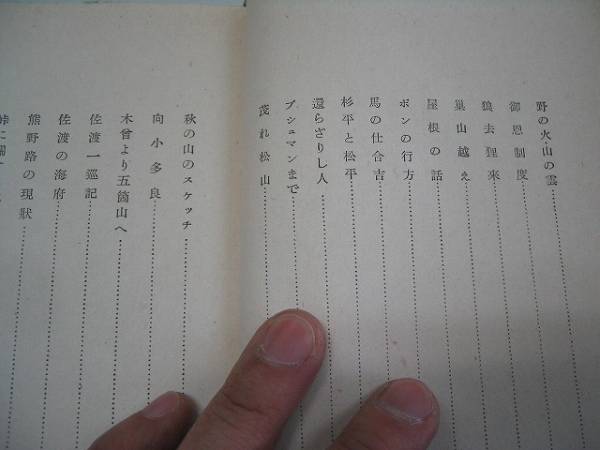 野の火山の雲
御恩制度
狼去狸来
巣山越え
屋根の話
ボンの行方
馬の仕合吉
杉平と松平
還らざりし人
ブシュマンまで
茂れ松山
秋の山のスケッチ
向小多良
木曾より五箇山へ
佐渡一巡記
佐渡の海府
熊野路の現状
峠に関す